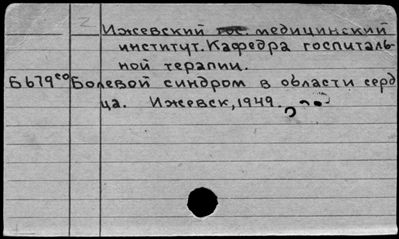 2
Ижевский гос. медицинский
институт. Кафедра госпиталь-
ной терапии.
Б679со Болевой синдром в области серд
ца. Ижевск, 1949.